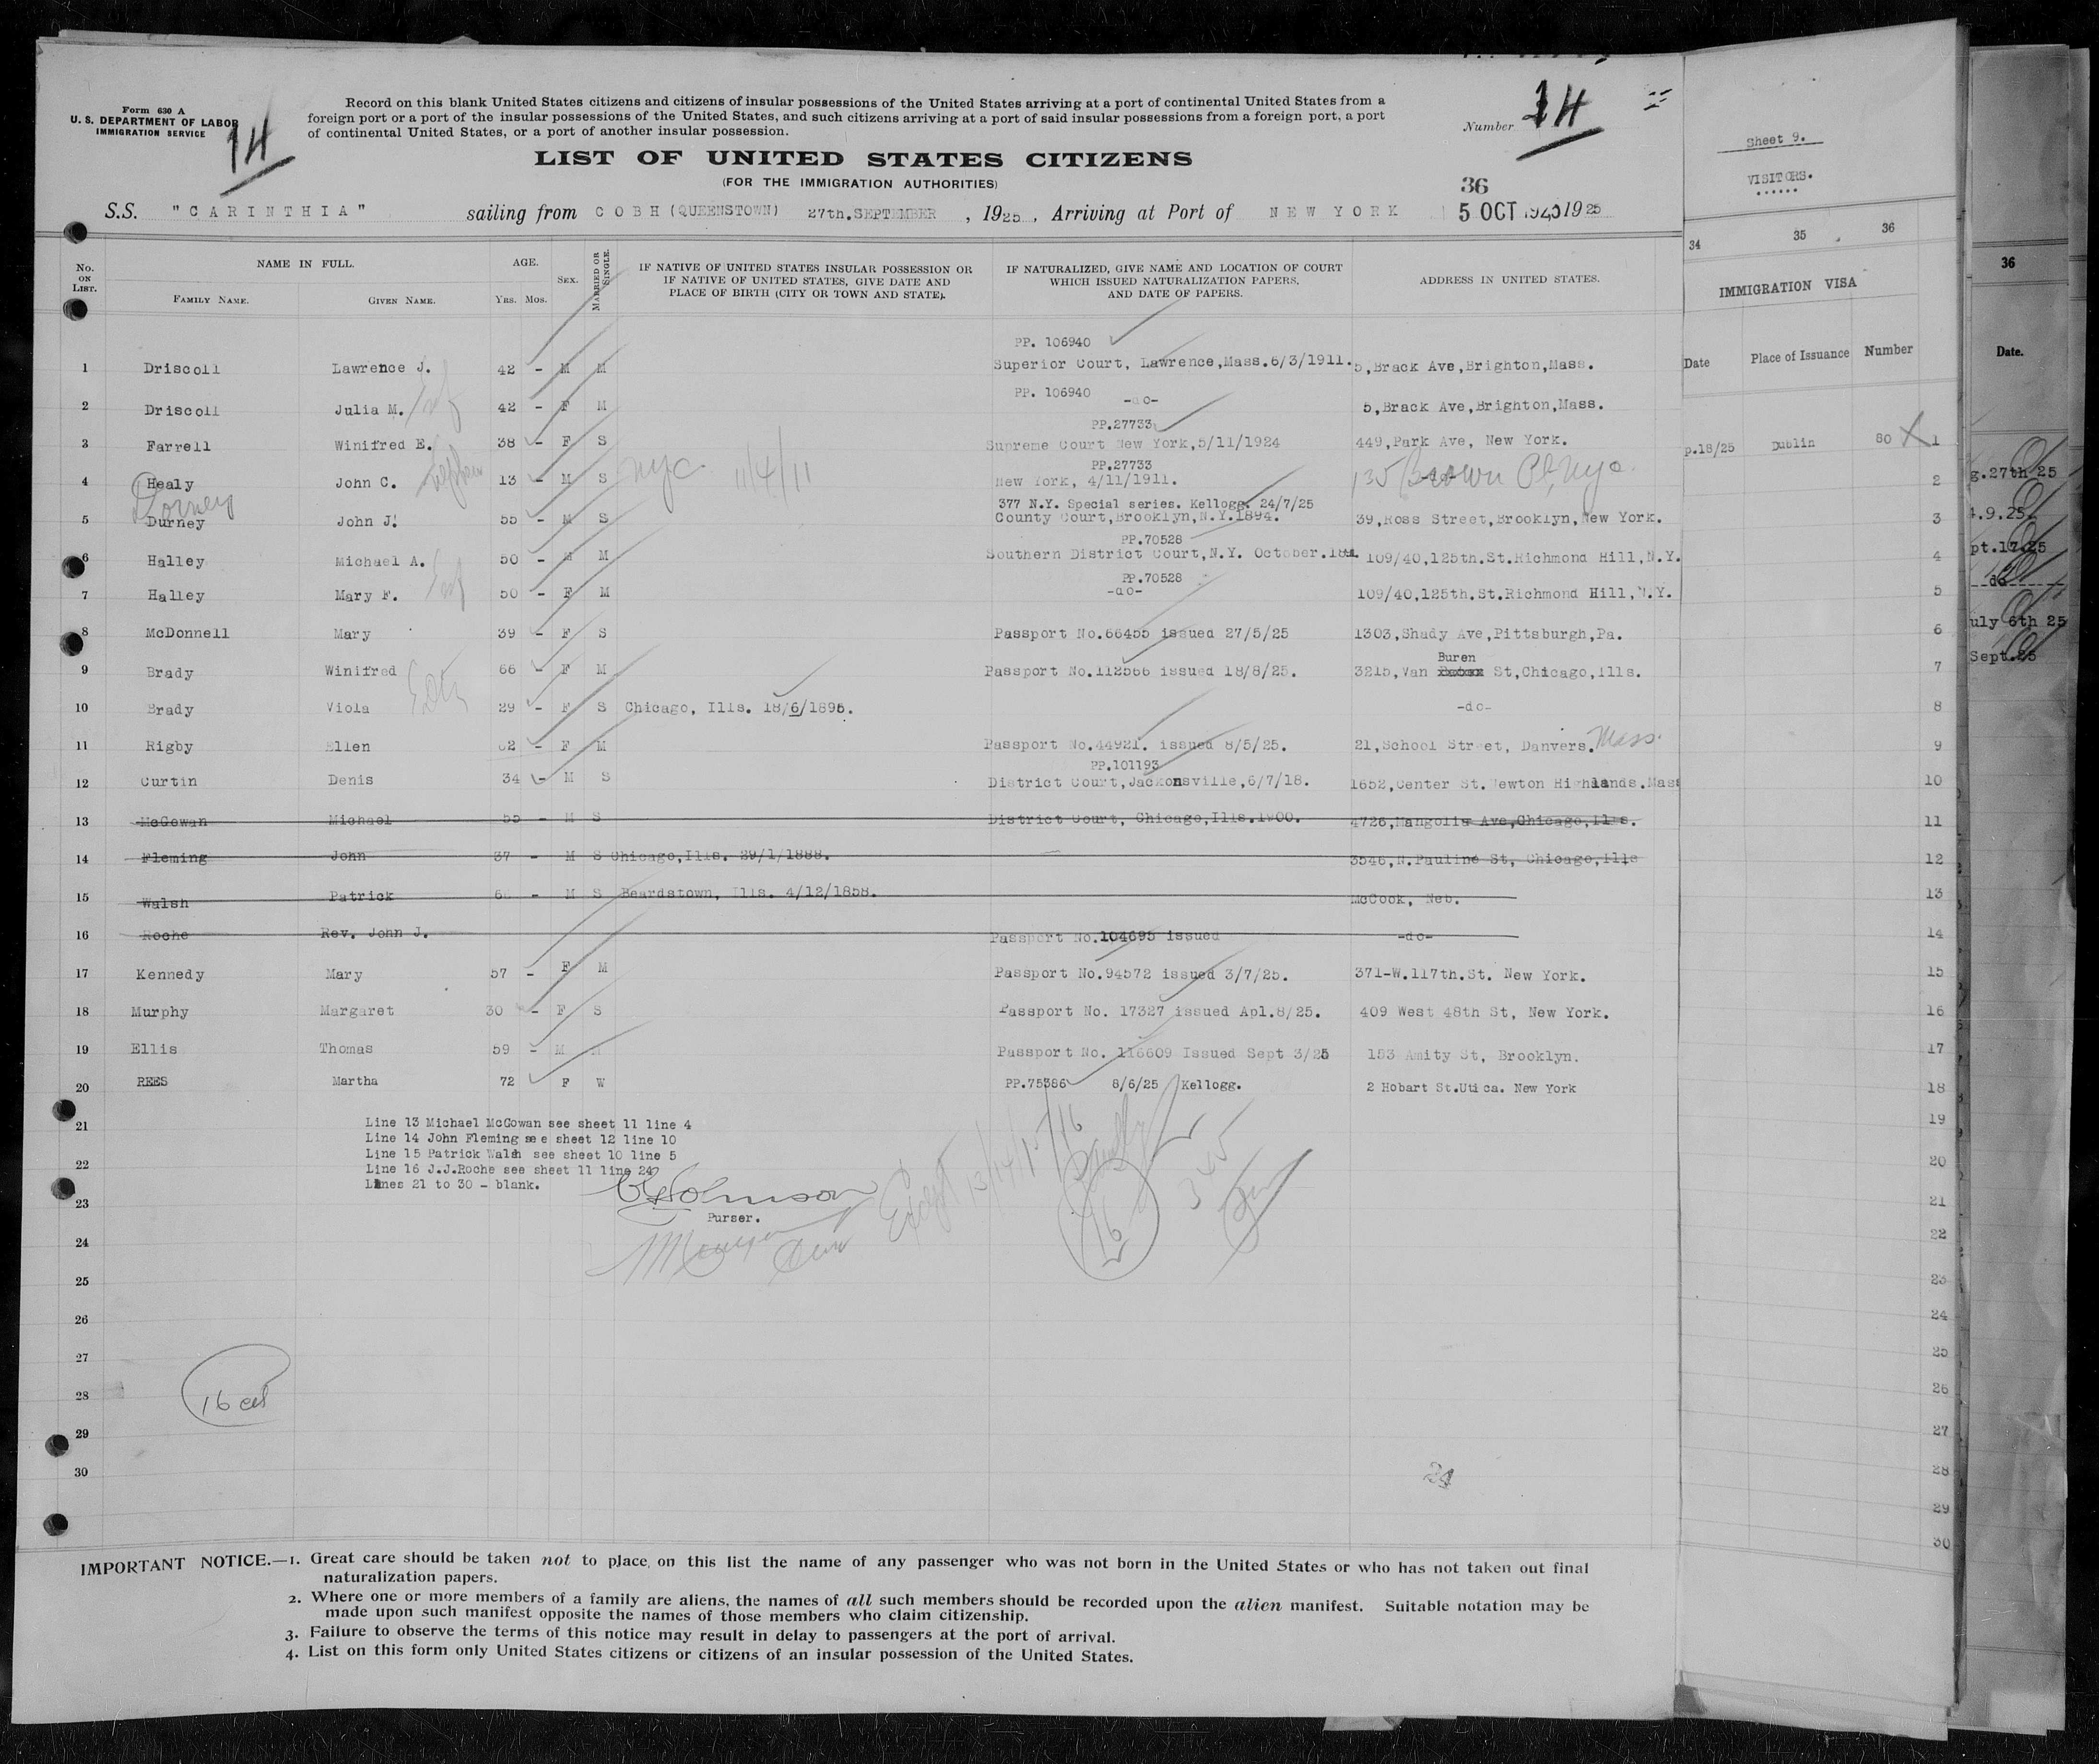 Form 630 A
U. S. DEPARTMENT OF LABOR
IMMIGRATION SERVICE
14
Record on this blank United States citizens and citizens of insular possessions of the United States arriving at a port of continental United States from a
foreign port or a port of the insular possessions of the United States, and such citizens arriving at a port of said insular possessions from a foreign port, a port
of continental United States, or a port of another insular possession.
Number 14
LIST OF UNITED STATES CITIZENS
(FOR THE IMMIGRATION AUTHORITIES)
36
S.S. "CARINTHIA" sailing from COBH (QUEENSTOWN) 27th.SEPTEMBER , 1925 , Arriving at Port of NEW YORK 5 OCT 1925 1925
No. ON LIST. NAME IN FULL. AGE. SEX. MARRIED OR SINGLE. IF NATIVE OF UNITED STATES INSULAR POSSESSION OR IF NATIVE OF UNITED STATES, GIVE DATE AND PLACE OF BIRTH (CITY OR TOWN AND STATE). IF NATURALIZED, GIVE NAME AND LOCATION OF COURT WHICH ISSUED NATURALIZATION PAPERS, AND DATE OF PAPERS. ADDRESS IN UNITED STATES.
FAMILY NAME. GIVEN NAME. YRS. MOS.
PP. 106940
1 Driscoll Lawrence J. 42 - M M Superior Court, Lawrence,Mass.6/3/1911. 5,Brack Ave,Brighton,Mass.
PP. 106940
2 Driscoll Julia M. 42 - F M -do- 5,Brack Ave,Brighton,Mass.
PP.27733
3 Farrell Winifred E. 38 - F S Supreme Court New York,5/11/1924 449,Park Ave, New York.
PP.27733
4 Healy John C. nephew 13 - M S nyc 11/4/11 New York, 4/11/1911. 135 Brown Pl, Nyc.
Dorney
377 N.Y. Special series. Kellogg. 24/7/25
5 Durney John J. 55 - M S County Court,Brooklyn,N.Y.1894. 39,Ross Street,Brooklyn,New York.
PP.70528
6 Halley Michael A. 50 - M M Southern District Court,N.Y. October. 109/40,125th.St.Richmond Hill,N.Y.
PP.70528
7 Halley Mary F. 50 - F M -do- 109/40,125th.St.Richmond Hill,N.Y.
8 McDonnell Mary 39 - F S Passport No.66455 issued 27/5/25 1303,Shady Ave,Pittsburgh,Pa.
Buren
9 Brady Winifred 66 - F M Passport No.112566 issued 18/8/25. 3215,Van St,Chicago,Ills.
10 Brady Viola 29 - F S Chicago, Ills. 18/6/1896. -do-
11 Rigby Ellen 62 - F M Passport No.44921. issued 8/5/25. 21,School Street, Danvers. Mass.
PP.101193
12 Curtin Denis 34 - M S District Court,Jacksonville,6/7/18. 1652,Center St.Newton Highlands.Mass
13 McGowan Michael 55 - M S District Court, Chicago,Ills.1900. 4726,Mangolia Ave,Chicago,Ills.
14 Fleming John 37 - M S Chicago,Ills. 29/1/1888. 3546,N.Pauline St, Chicago,Ills
15 Walsh Patrick 66 - M S Beardstown, Ills. 4/12/1858. McCook, Neb.
16 Roche Rev. John J. Passport No.104695 issued -do-
17 Kennedy Mary 57 - F M Passport No.94572 issued 3/7/25. 371-W.117th.St. New York.
18 Murphy Margaret 30 - F S Passport No. 17327 issued Apl.8/25. 409 West 48th St, New York.
19 Ellis Thomas 59 - M M Passport No. 116609 Issued Sept 3/25 153 Amity St, Brooklyn.
20 REES Martha 72 F W PP.75386 8/6/25 Kellogg. 2 Hobart St.Utica. New York
21
Line 13 Michael McGowan see sheet 11 line 4
Line 14 John Fleming see sheet 12 line 10
Line 15 Patrick Walsh see sheet 10 line 5
22
Line 16 J.J.Roche see sheet 11 line 24
Lines 21 to 30 - blank.
Johnson
Purser.
Except 13/14/15/16
16
345
23
24
25
26
27
28
16
29
30
24
IMPORTANT NOTICE.—1. Great care should be taken not to place on this list the name of any passenger who was not born in the United States or who has not taken out final
naturalization papers.
2. Where one or more members of a family are aliens, the names of all such members should be recorded upon the alien manifest. Suitable notation may be
made upon such manifest opposite the names of those members who claim citizenship.
3. Failure to observe the terms of this notice may result in delay to passengers at the port of arrival.
4. List on this form only United States citizens or citizens of an insular possession of the United States.
Sheet 9.
VISITORS.
34 35 36
IMMIGRATION VISA
Date Place of Issuance Number
p.18/25 Dublin 80 X 1
2
3
4
5
6
7
8
9
10
11
12
13
14
15
16
17
18
19
20
21
22
23
24
25
26
27
28
29
30
36
Date.
g.27th 25
4.9.25.
pt.17.25
do
uly 6th 25
Sept.25